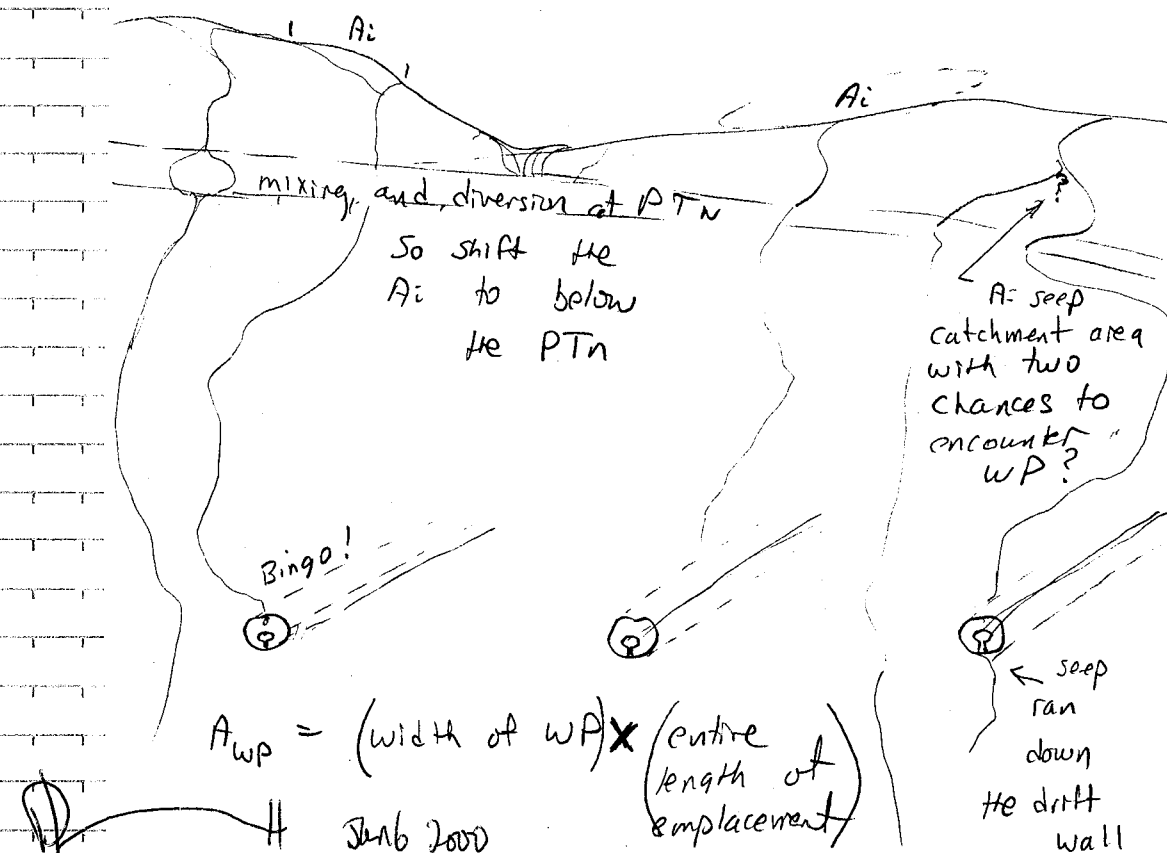 Ai
Ai
mixing, and diversion at PTN
So shift the
Ai to below
the PTn
Ai seep
catchment area
with two
chances to
encounter
WP?
Bingo!
seep
ran
down
the drift
wall
AWP = (width of WP) X (entire
length of
emplacement)
Jan 6 2000